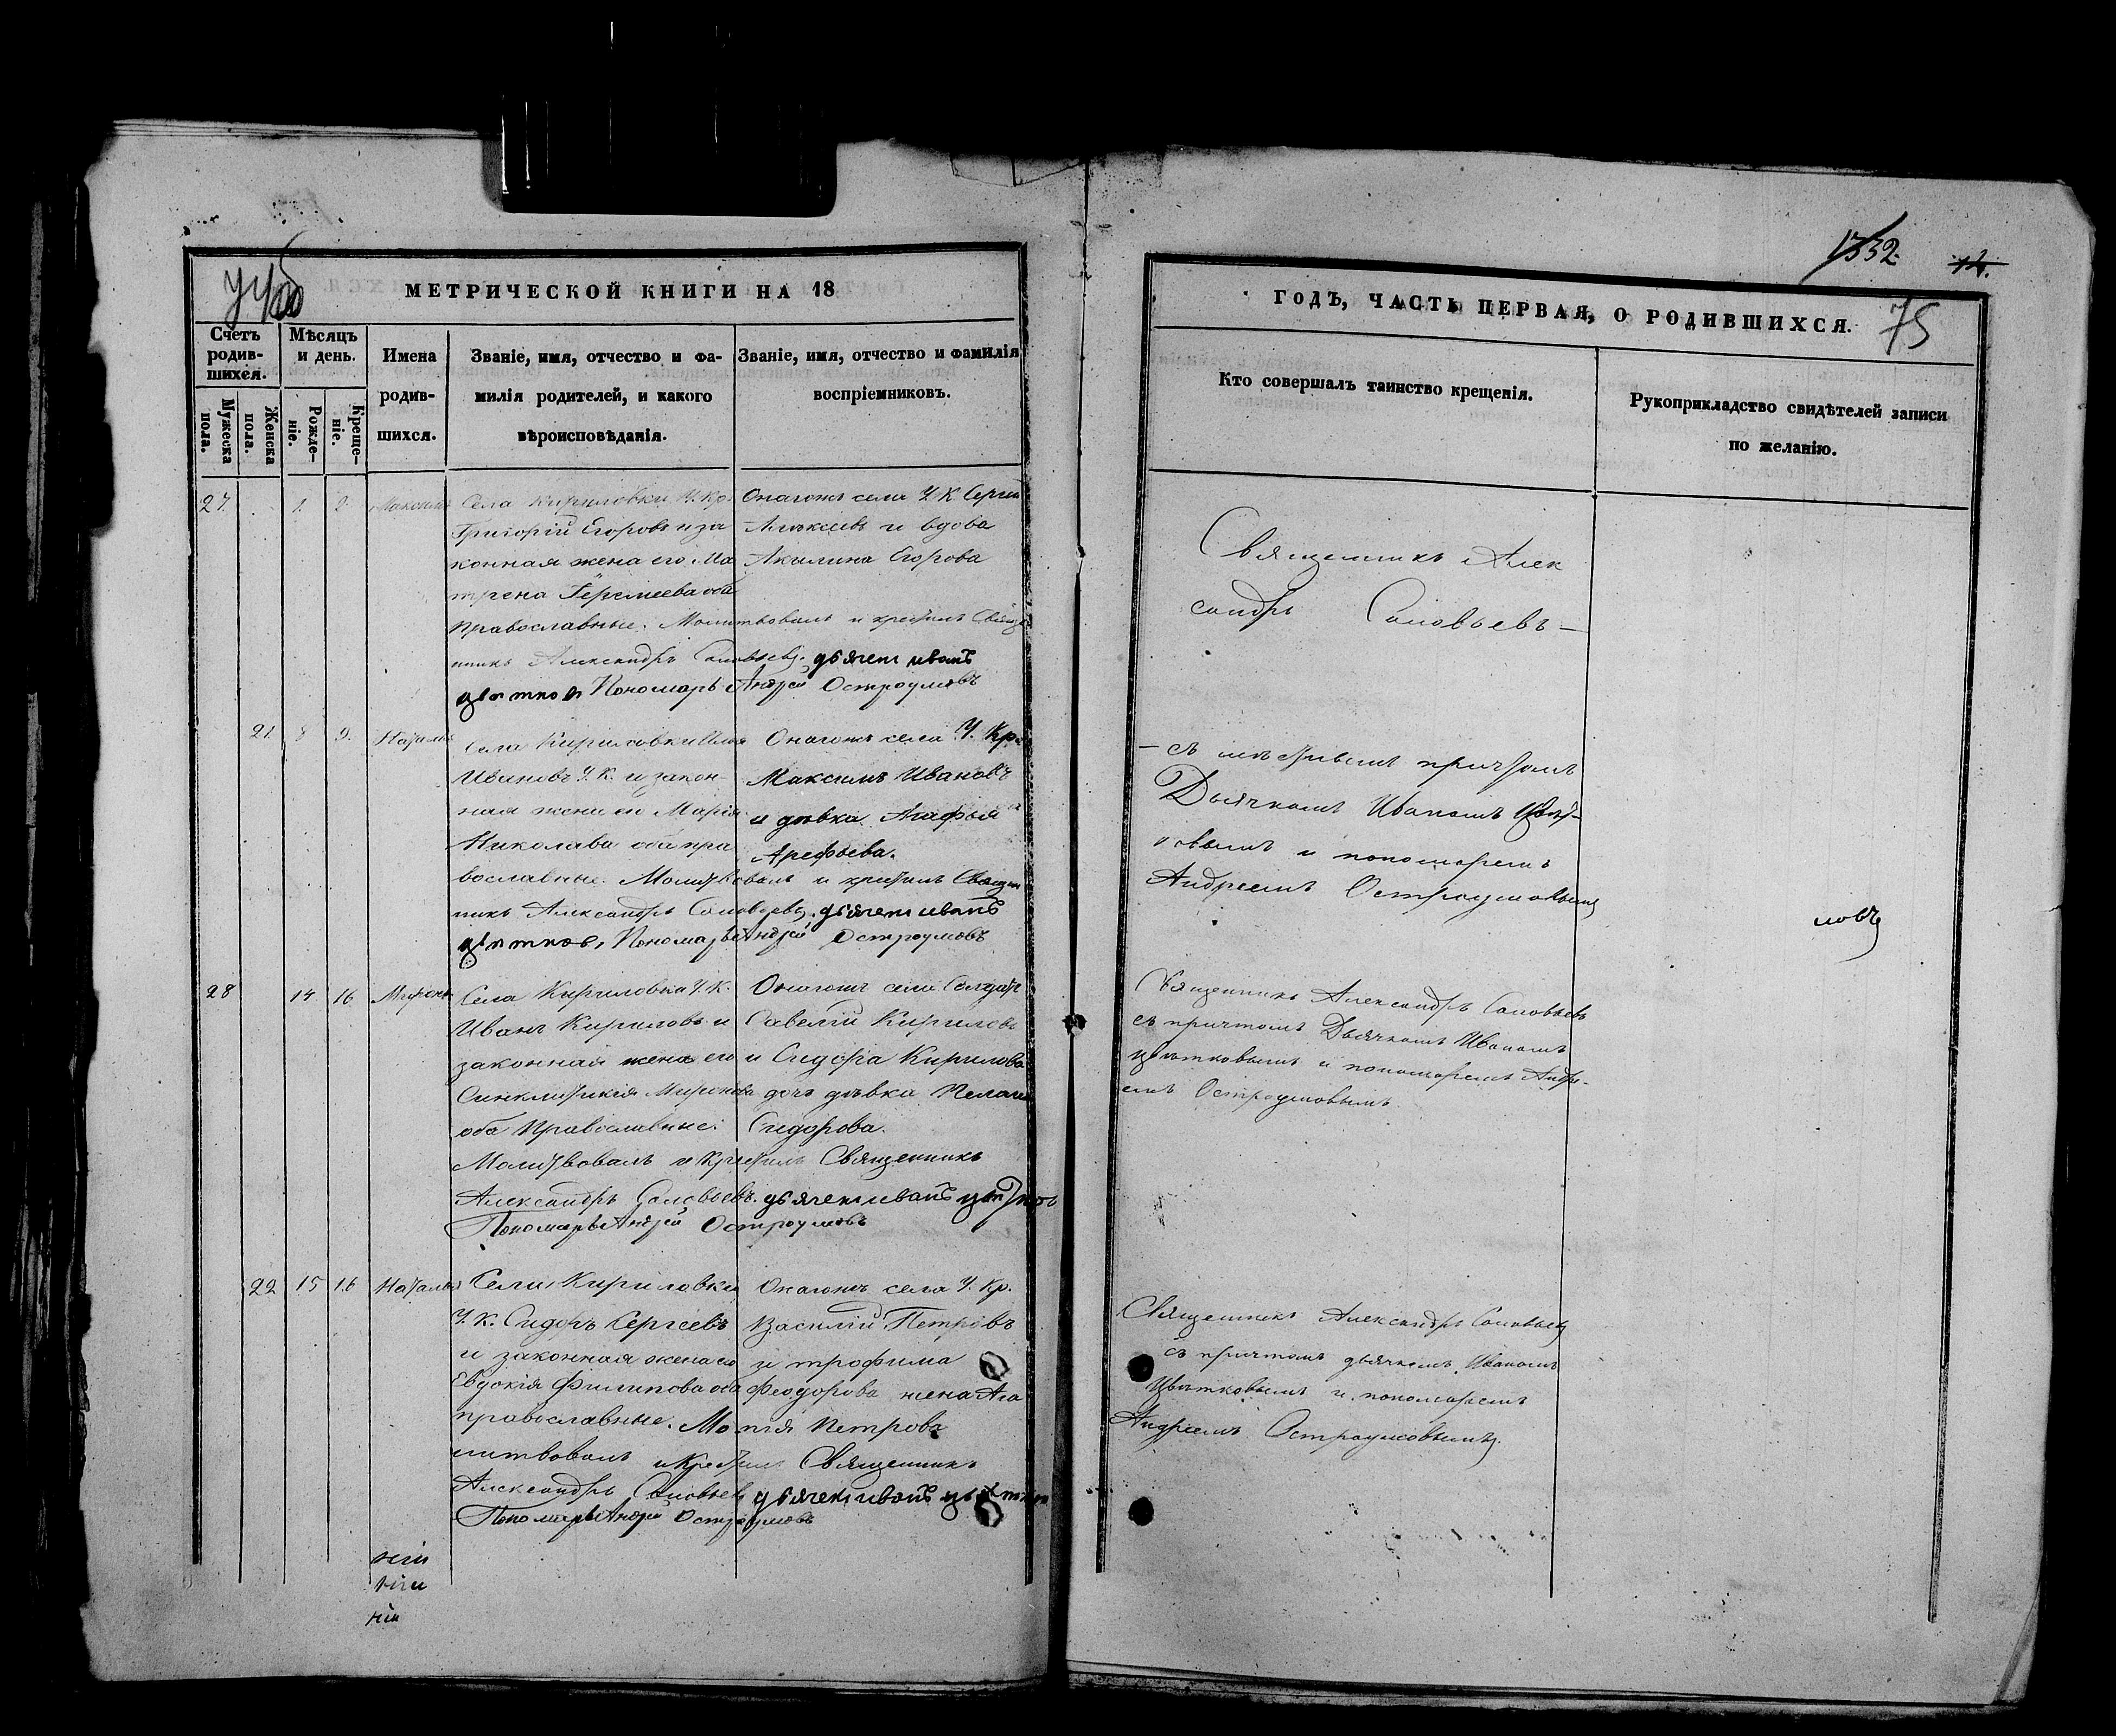 1332. 12.
75
МЕТРИЧЕСКОЙ КНИГИ НА 18
Счетъ родив-шихся.
Мужеска пола.
Женска пола.
Мѣсяцъ и день.
Рожде-ніе.
Креще-ніе.
Имена
родив-
шихся.
Званіе, имя, отчество и фа-
милія родителей, и какого
вѣроисповѣданія.
Званіе, имя, отчество и фамилія
воспріемниковъ.
27. 1. 2. Максимъ
Села Кириловки У. Кр.
Григорій Егоровъ и за
конная жена его Ма
трена Іеремеева оба
православные. Молитвовалъ и крестилъ Свяще
нникъ Александръ Соловьевъ. дьячекъ иванъ
цветковъ Пономарь Андрей Остроумовъ
Онагожъ села У. К. Сергій
Алексеевъ и вдова
Акылина Егорова
21. 8 9. Наталья
Села Кириловки
Ивановъ У. К. и закон-
ная жена ей Марія
Николава оба пра
вославные. Молитвовалъ и крестилъ Священ
никъ Александръ Соловьевъ. дьячекъ иванъ
цветковъ, Пономарь Андрей Остроумовъ
Онагожъ села У. Кр.
Максимъ Ивановъ
и дѣвка Агафья
Арефьева.
28 14 16 Миронъ
Села Кириловки У. К.
Иванъ Кириловъ и
законная жена его
Синклитикія Миронова
оба Православные.
Молитвовалъ и крестилъ Священникъ
Александръ Соловьевъ. дьячекъ иванъ цветковъ
Пономарь Андрей Остроумовъ
Онагожъ села Солдатъ
Савелій Кириловъ
и Сидора Кирилова
дочь дѣвка Пелагія
Сидорова.
22 15 16 Наталья
Села Кириловки
У. К. Сидоръ Сергеевъ
и законная жена его
Евдокія Филипова оба
православные. Мо
литвовалъ и крестилъ Священникъ
Александръ Соловьевъ дьячекъ иванъ цветков
Пономарь Андрей Остроумовъ
Онагожъ села У. Кр.
Василій Петровъ
и трофима
Феодорова жена Ага
пія Петрова
ніи
ніи
ніи
ГОДЪ, ЧАСТЬ ПЕРВАЯ, О РОДИВШИХСЯ.
Кто совершалъ таинство крещенія.
Рукоприкладство свидѣтелей записи
по желанію.
Священникъ Алек
сандръ Соловьевъ —
— съ мѣстнымъ причтомъ
Дьячкомъ Иваномъ Цвѣт-
ковымъ и пономаремъ
Андреемъ Остроумовымъ
мовъ
Священникъ Александръ Соловьевъ
съ причтомъ Дьячкомъ Иваномъ
Цвѣтковымъ и пономаремъ Андре-
емъ Остроумовымъ.
Священникъ Александръ Соловьевъ
съ причтомъ дьячкомъ Иваномъ
Цвѣтковымъ и пономаремъ
Андреемъ Остроумовымъ.